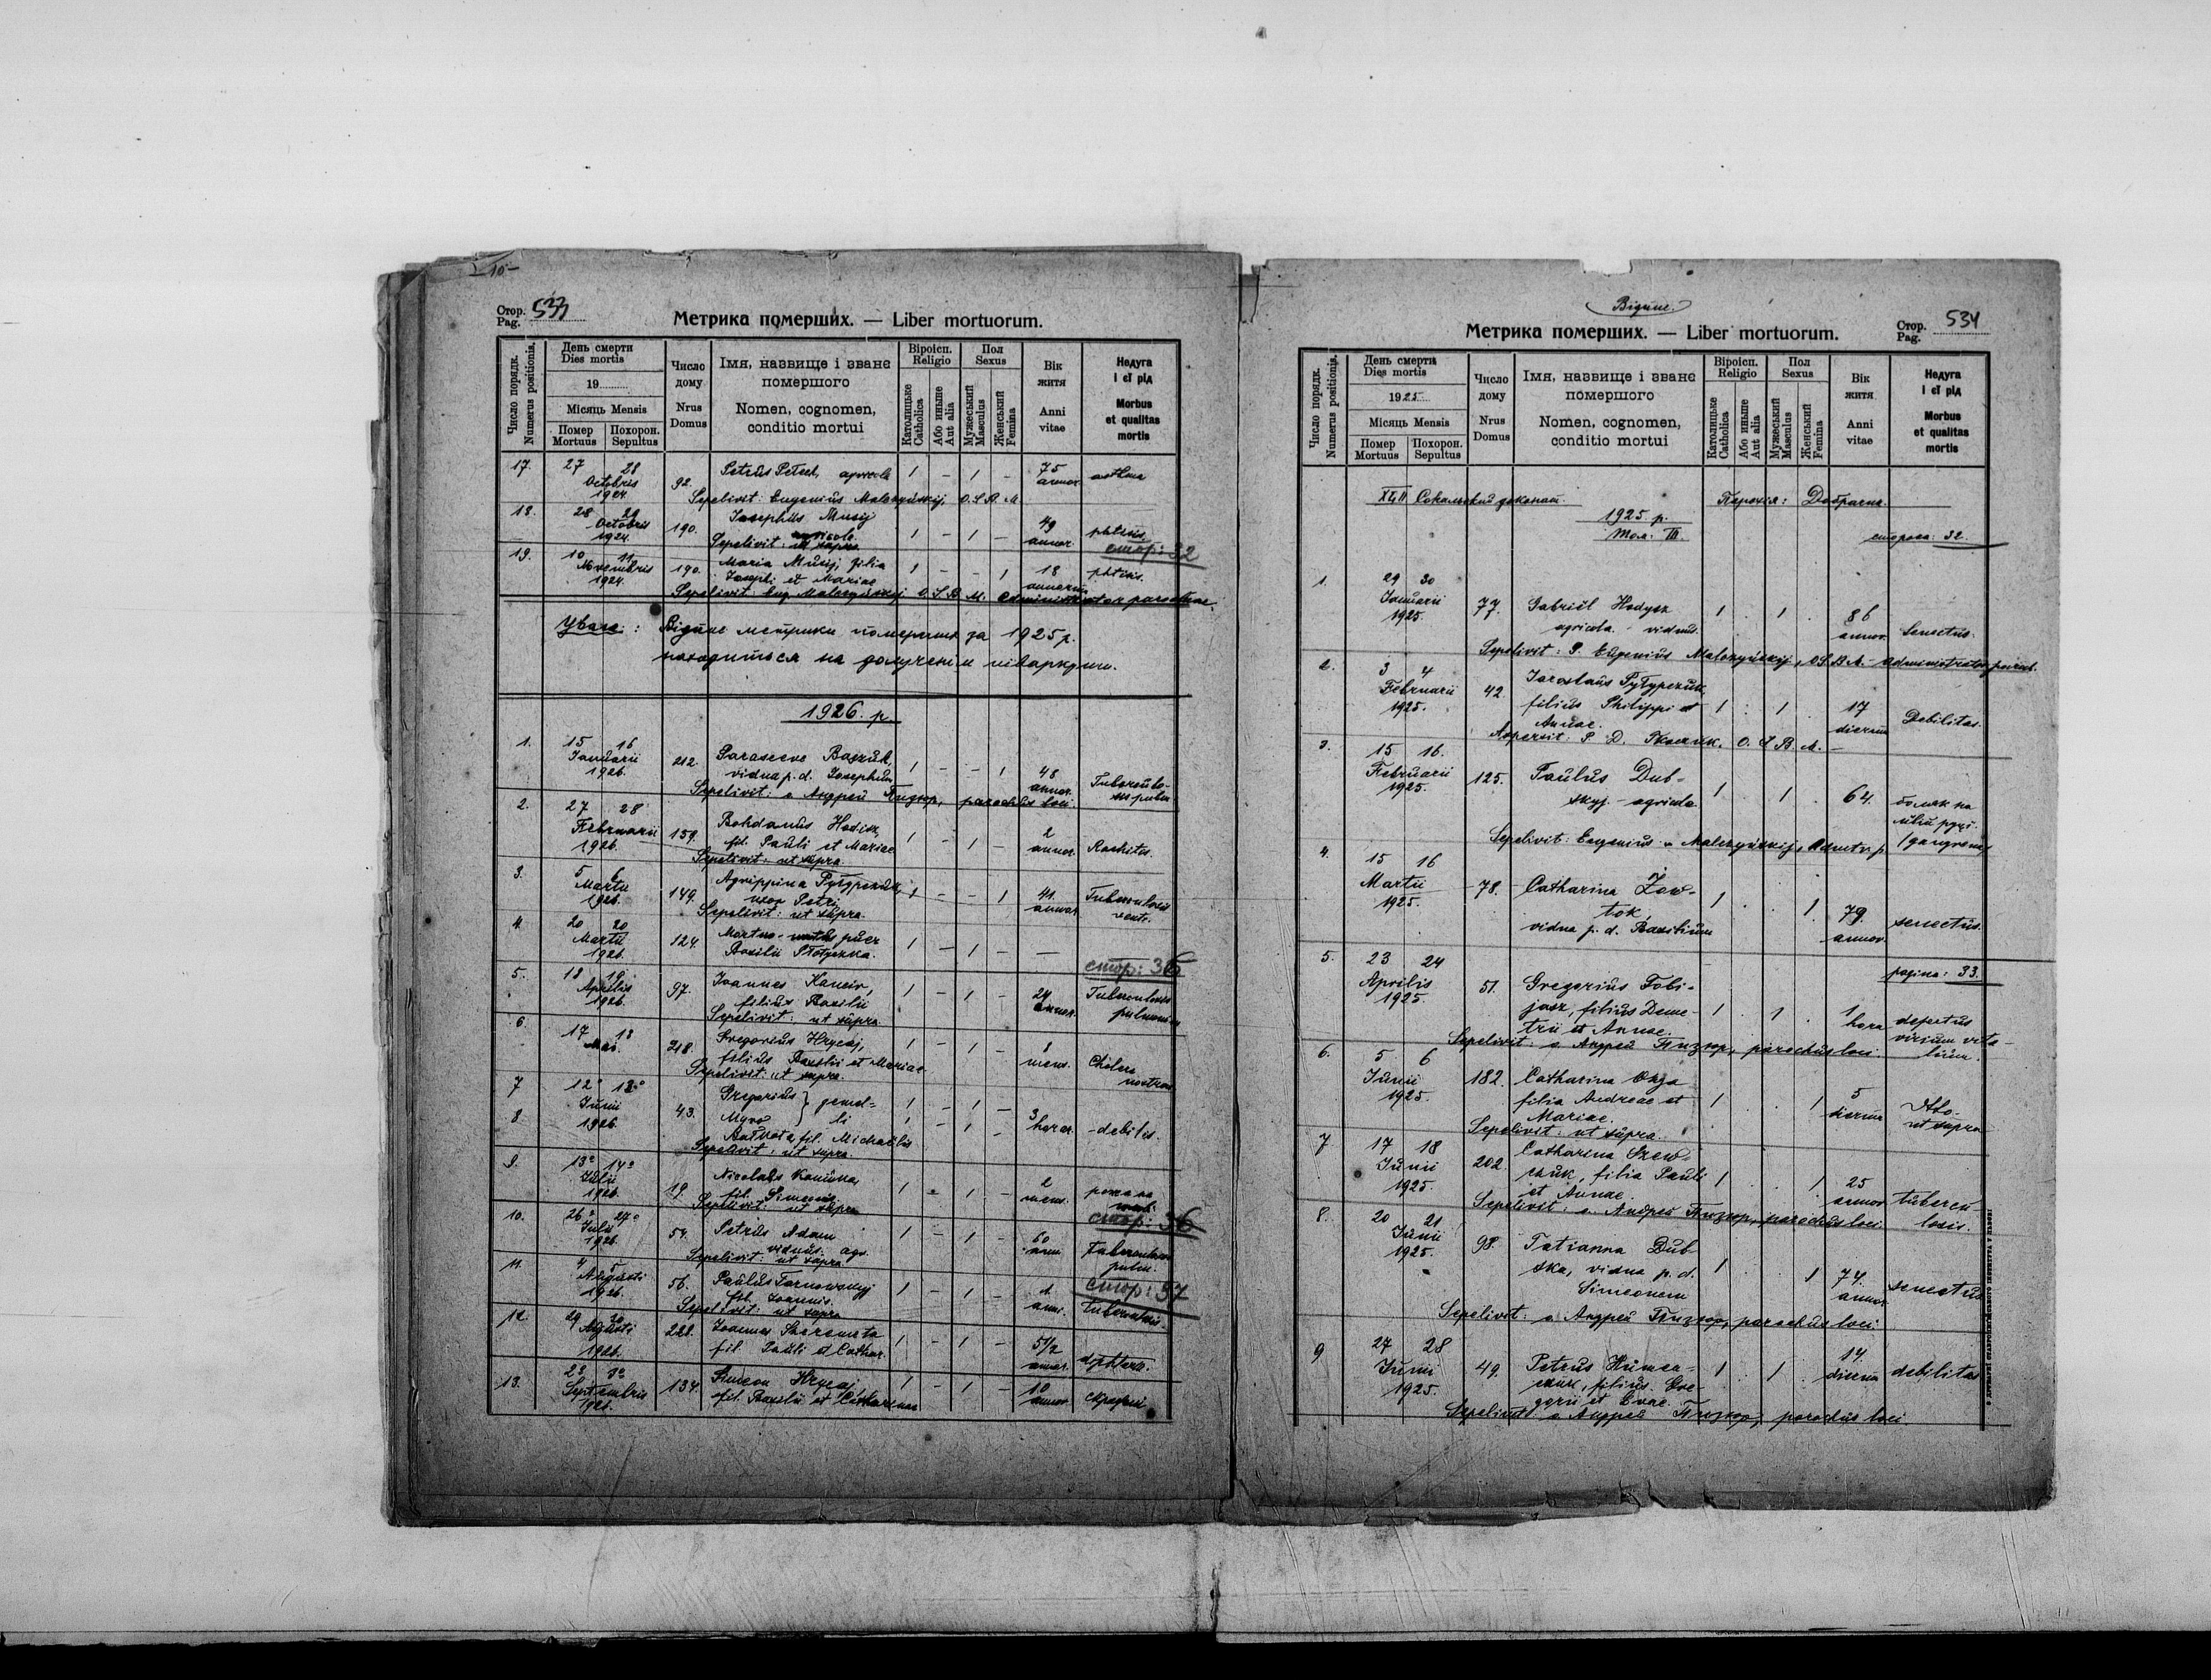 10
Стор. Pag. 533
Метрика померших. — Liber mortuorum.
Число порядк. Numerus positionis.
День смерти Dies mortis
19
Місяць Mensis
Помер Mortuus
Похорон. Sepultus
Число дому Nrus Domus
Імя, назвище і зване помершого
Nomen, cognomen, conditio mortui
Віроісп. Religio
Католицьке Catholica
Або инше Aut alia
Пол Sexus
Мужеський Masculus
Женський Femina
Вік житя
Anni vitae
Недуга і єї рід
Morbus et qualitas mortis
17. 27 28 Octobris 1924. 92. Petrus agricola 1 – 1 – 75 annor. asthma
Sepelivit: Eugenius O.S.B.M.
18. 28 29 Octobris 1924. 190. Josephus Musij agricola 1 – 1 – 49 annor. phtisis
Sepelivit: ut supra.
стор: 32
19. 10 11 Novembris 1924. 190. Maria Musij filia Josephi et Mariae 1 – – 1 18 annorum phtisis.
Sepelivit: Eug. O.S.B.M. administrator parochiae.
Увага: Відпис метрики померших за 1925 р.
находиться на долученім піваркуши.
1926. р.
1. 15 16 Januarii 1926. 212. Parasceve vidua p. d. Josephum 1 – – 1 48 annor. Tuberculosis pulm.
Sepelivit: о Андрей Пизюр, parochus loci.
2. 27 28 Februarii 1926. 159. Bohdanus Hodisz, fil. Pauli et Mariae 1 – 1 – 2 annor. Rachitis.
Sepelivit: ut supra.
3. 5 6 Martii 1926. 149. Agrippina uxor Petri 1 – – 1 41. annor. Tuberculosis ventr.
Sepelivit: ut supra.
4. 20 20 Martii 1926. 124. Mortuo-natus puer Basilii 1 – 1 – —
стор: 36
5. 18 19 Aprilis 1926. 97. Joannes filius Basilii 1 – 1 – 24 annor. Tuberculosis pulmonum
Sepelivit: ut supra.
6. 17 18 Maii. 218. Gregorius Hrycaj, filius Basilii et Mariae 1 – 1 – 8 mens. Cholera nostras
Sepelivit: ut supra.
7 12° 13° Junii 1926. 43. Gregorius } gemel-
8 li fil. Michaelis 3 horar. debiles.
Sepelivit: ut supra.
9. 13° 14° Julii 1926. 19. Nicolaus fil. Simeonis 1 – 1 – 2 mens.
Sepelivit: ut supra
стор: 36
10. 26° 27° Julii 1926. 54. Petrus Adam viduus. agr. 1 – 1 – 60 ann. Tuberculosis pulm.
Sepelivit: ut supra
стор: 37
11. 4 5 Augusti 1926. 56. Paulus Tarnowskyj fil. Joannis. 1 – 1 – 1 anni. tuberculosis.
Sepelivit: ut supra
12. 29 30 Augusti 1926. 228. Joannes Szeremeta fil. Pauli et Cathar. 1 – 1 – 5 1/2 annor. diphteria.
13. 2° 3° Septembris 1926. 134. Simeon Hrycaj fil. Basilii et Catharinae 1 – 1 – 10 annor.
Відпис.
Метрика померших. — Liber mortuorum.
Стор. Pag. 534
Число порядк. Numerus positionis.
День смерти Dies mortis
1925
Місяць Mensis
Помер Mortuus
Похорон. Sepultus
Число дому Nrus Domus
Імя, назвище і зване помершого
Nomen, cognomen, conditio mortui
Віроісп. Religio
Католицьке Catholica
Або инше Aut alia
Пол Sexus
Мужеський Masculus
Женський Femina
Вік житя
Anni vitae
Недуга і єї рід
Morbus et qualitas mortis
Сокальский деканат. Парохія:
1925. р.
Том. III.
сторона: 32.
1. 29 30 Januarii 1925. 77. Gabriel Hodysz agricola. - viduus. 1 . 1 . 86 annor. Senectus.
Sepelivit: P. Eugenius O.S.B.M. - administrator paroch.
2. 3 4 Februarii 1925. 42. Jaroslaus filius Philippi et Annae. 1 . 1 17 dierum Debilitas.
P. D. O.S.B.M. –
3. 15 16. Februarii 1925. 125. Paulus Dub-
skyj. - agricola. 1 . 1 . 64.
(gangrena)
Sepelivit: Eugenius
4. 15 16 Martii 1925. 78. Catharina Żow-
tok, vidua p. d. Basilium 1 . . 1 79. annor. senectus.
pagina: 33.
5. 23 24 Aprilis 1925. 51. Gregorius Tobi-
jasz, filius Deme-
trii et Annae. 1 . 1 . 1 hora defectus virium vita-
lium.
Sepelivit: о Андрей Пизюр, parochus loci.
6. 5 6 Junii 1925. 182. Catharina filia Andreae et Mariae. 1 . . 1 5 dierum ut supra
Sepelivit: ut supra.
7 17 18 Junii 1925 202. Catharina Szew-
czuk, filia Pauli et Annae. 1 . . 1 25 annor. tubercu-
losis.
Sepelivit: о. Андрей Пизюр, parochus loci
8. 20 21 Junii 1925. 98. Tatianna Dub-
ska, vidua p. d. Simeonem 1 . . 1 74. annor. senectus
Sepelivit: о Андрей Пизюр, parochus loci.
9 27 28 Junii 1925. 49. Petrus Humen-
czuk, filius Gre-
gorii et Evae. 1 . 1 . 14. dierum debilitas
Sepelivit: о Андрей Пизюр, parochus loci